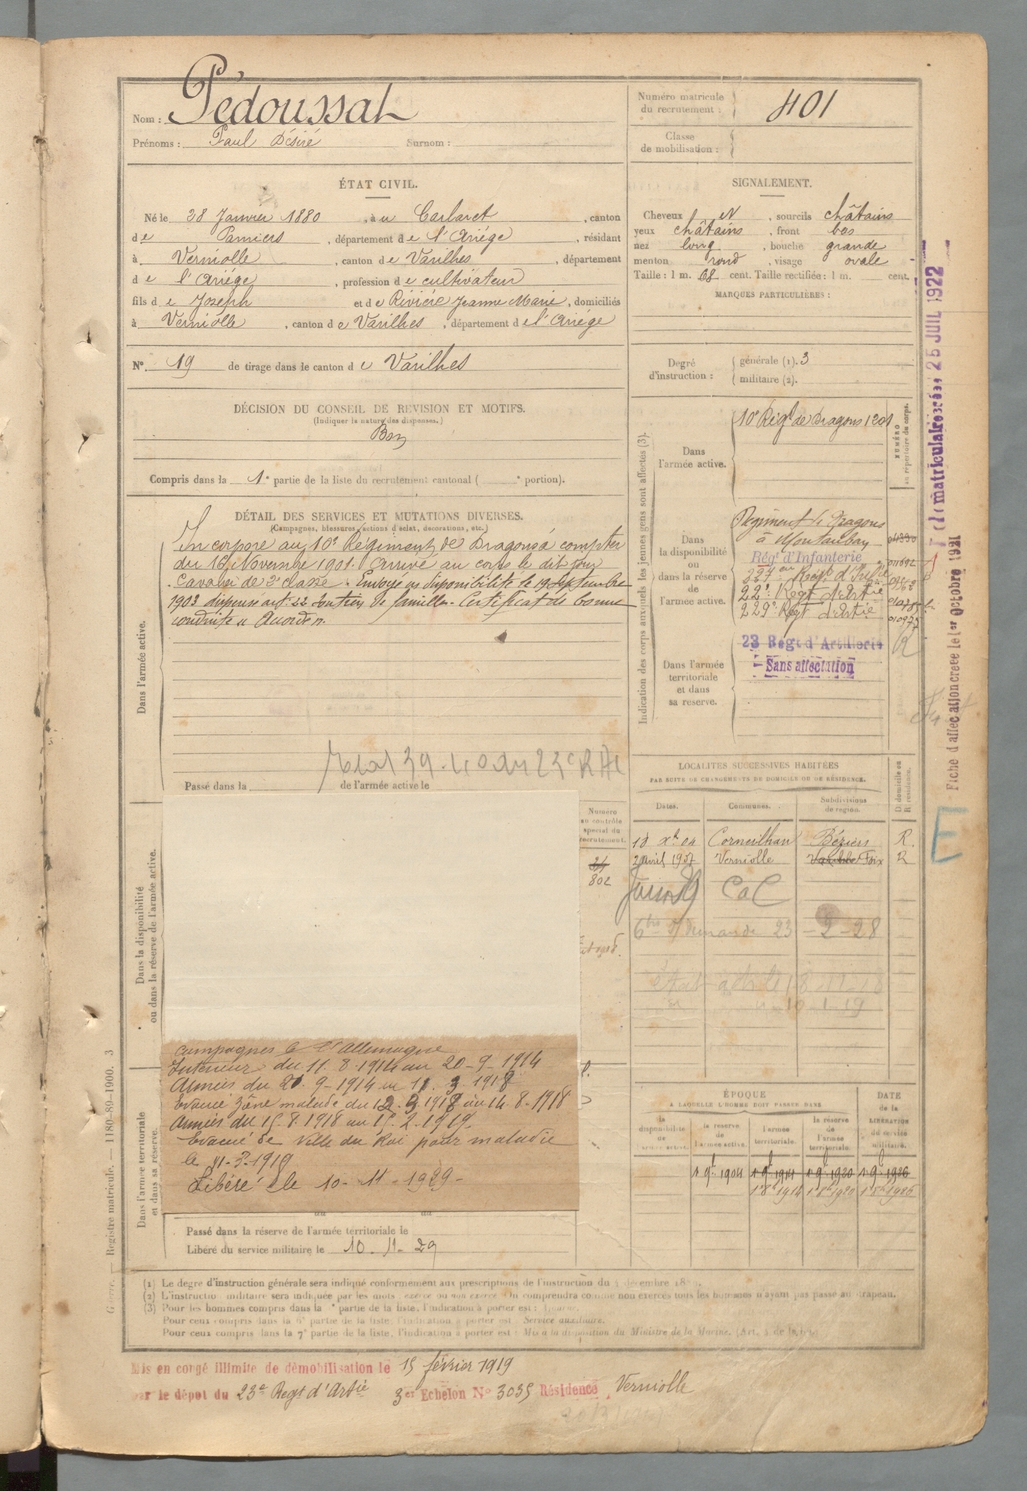 Nom : Pédoussat
Prénoms : Paul Désiré Surnom :
Numéro matricule du recrutement : 401
Classe de mobilisation :
ÉTAT CIVIL.
Né le 28 Janvier 1880, à Carlaret, canton
de Pamiers, département de l'Ariége, résidant
à Verniolle, canton de Varilhes, département
de l'Ariége, profession de cultivateur
fils de Joseph et de Rivière Jeanne Marie, domiciliés
à Verniolle, canton de Varilhes, département de l'Ariége
N° 19 de tirage dans le canton de Varilhes
SIGNALEMENT.
Cheveux N, sourcils châtains
yeux châtains, front bas
nez long, bouche grande
menton rond, visage ovale
Taille : 1 m. 68 cent. Taille rectifiée : 1 m. cent.
MARQUES PARTICULIÈRES :
Degré d'instruction : générale (1). 3
militaire (2).
DÉCISION DU CONSEIL DE REVISION ET MOTIFS.
(Indiquer la nature des dispenses.)
Bon
Compris dans la 1e partie de la liste du recrutement cantonal ( e portion).
DÉTAIL DES SERVICES ET MUTATIONS DIVERSES.
(Campagnes, blessures, actions d'éclat, décorations, etc.)
Dans l'armée active.
Incorporé au 10e Régiment de Dragons à compter
du 16 Novembre 1901. Arrivé au corps le dit jour
Cavalier de 2e classe. Envoyé en disponibilité le 19 Septembre
1903 dispensé art. 22 soutien de famille. Certificat de bonne
conduite « Accordé ».
Passé dans la de l'armée active le
Indication des corps auxquels les jeunes gens sont affectés (3).
NUMÉRO au répertoire du corps.
Dans l'armée active.
10e Régt de Dragons 1201
Dans la disponibilité ou dans la réserve de l'armée active.
Régiment de Dragons
à Montauban
Régt d'Infanterie
22e Regt d'Artie
229e Regt d'Artie
Dans l'armée territoriale et dans sa réserve.
23 Régt d'Artillerie
Sans affectation
LOCALITÉS SUCCESSIVES HABITÉES
PAR SUITE DE CHANGEMENTS DE DOMICILE OU DE RÉSIDENCE.
Dates. Communes. Subdivisions de région. D. domicile ou R. résidence.
18 Xbre 04 Corneilhan Béziers R.
2 avril 1907 Verniolle Varilhes Foix R
Numéro au contrôle spécial du recrutement.
802
Dans la disponibilité ou dans la réserve de l'armée active.
Campagnes c. l'Allemagne
Intérieur du 11. 8. 1914 au 20-9-1914
Armées du 21. 9-1914 au 11. 3 1918
Evacué zône malade du 12-3 1918 au 14-8-1918
Armées du 15. 8. 1918 au 15. 2. 1919.
Evacué de pour maladie
Libéré le 10-11-1929-
Dans l'armée territoriale et dans sa réserve.
Passé dans la réserve de l'armée territoriale le
Libéré du service militaire le 10. 11. 29
ÉPOQUE
A LAQUELLE L'HOMME DOIT PASSER DANS
la disponibilité de l'armée active. la réserve de l'armée active. l'armée territoriale. la réserve de l'armée territoriale. DATE de la LIBÉRATION du service militaire.
1 9bre 1904 1 9bre 1914 1 9bre 1920 1 9bre 1926
(1) Le degré d'instruction générale sera indiqué conformément aux prescriptions de l'instruction du
(2) L'instruction militaire sera indiquée par les mots : exercé ou non exercé. On comprendra comme non exercés tous les hommes n'ayant pas passé au drapeau.
(3) Pour les hommes compris dans la e partie de la liste, l'indication à porter est :
Pour ceux compris dans la 6e partie de la liste, l'indication à porter est : Service auxiliaire.
Pour ceux compris dans la 7e partie de la liste, l'indication à porter est : Mis à la disposition du Ministre de la Marine.
Mis en congé illimité de démobilisation le 15 février 1919
par le dépôt du 23e Regt d'Artie 3e Echelon N° 3035 Résidence, Verniolle
Registre matricule. — 1180-89-1900. 3
Fiche d'affectation créée le 1er Octobre 1921
matriculaire créée 25 JUIL 1922
E